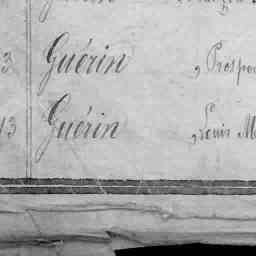 3 Guérin , Prospe
13 Guérin , Louis M